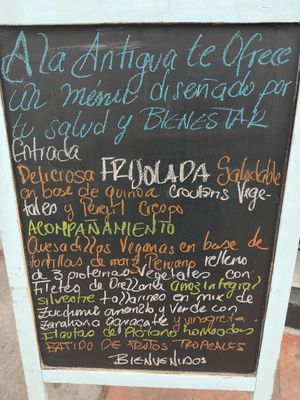 A la Antigua te Ofrece
un menú diseñado por
tu salud y BIENESTAR
Entrada
Deliciosa FRIJOLADA Saludable
en base de quinoa croutons Vege-
tales y Perejil Crespo
ACOMPAÑAMIENTO
Quesadillas Veganas en base de
tortillas de maíz Peruano relleno
de 3 proteínas Vegetales con
Filetes de Orellana arroz integral
silvestre tallarines en mix de
Zucchinni amarillo y Verde con
Zanahoria aguacate y vinagreta
Flautas de Plátano horneadas
BATIDO DE FRUTOS TROPICALES
BIENVENIDOS